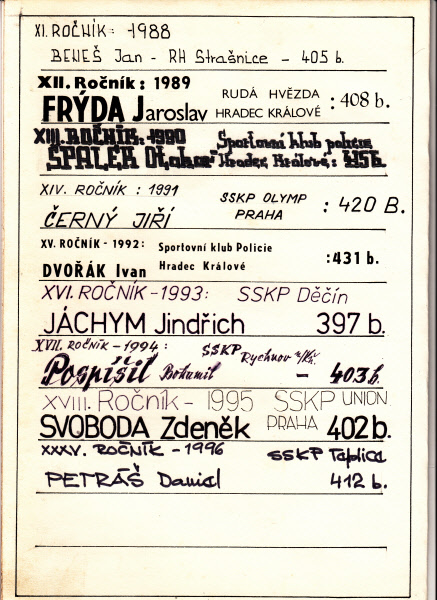 XI. ROČNÍK - 1988
BENEŠ Jan - RH Strašnice - 405 b.
XII. Ročník: 1989
RUDÁ HVĚZDA
FRÝDA Jaroslav HRADEC KRÁLOVÉ : 408 b.
XIII. ROČNÍK: 1990 Sportovní klub policie
ŠPALEK Otakar Hradec Králové:
XIV. ROČNÍK : 1991 SSKP OLYMP
ČERNÝ JIŘÍ PRAHA : 420 B.
XV. ROČNÍK - 1992: Sportovní klub Policie
DVOŘÁK Ivan Hradec Králové :431 b.
XVI. ROČNÍK - 1993: SSKP Děčín
JÁCHYM Jindřich 397 b.
XVII. ROČNÍK - 1994: SSKP Rychnov n/Kň.
Pospíšil Bohumil - 403 b.
XVIII. Ročník - 1995 SSKP UNION
SVOBODA Zdeněk PRAHA 402 b.
XXXV. ROČNÍK - 1996 SSKP Teplice
PETRÁŠ Daniel 412 b.